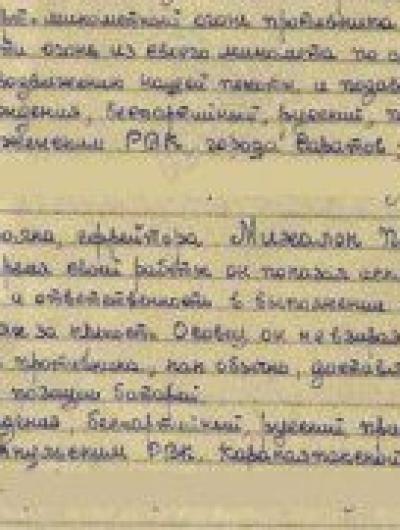 миномётный огонь противника
ти огонь из своего миномета по
родвижению нашей пехоты и позво
ждения, беспартийный, русский, п
РВК, города Саратов
ояна, ефрейтора Михалон П
время своей работы он показал
и ответственности в выполнение
за крепость Осовец он невзирая
противника, как обычно, доставл
позиции батарей
ждения, беспартийный, русский пр
кпульским РВК. Каракалпакской